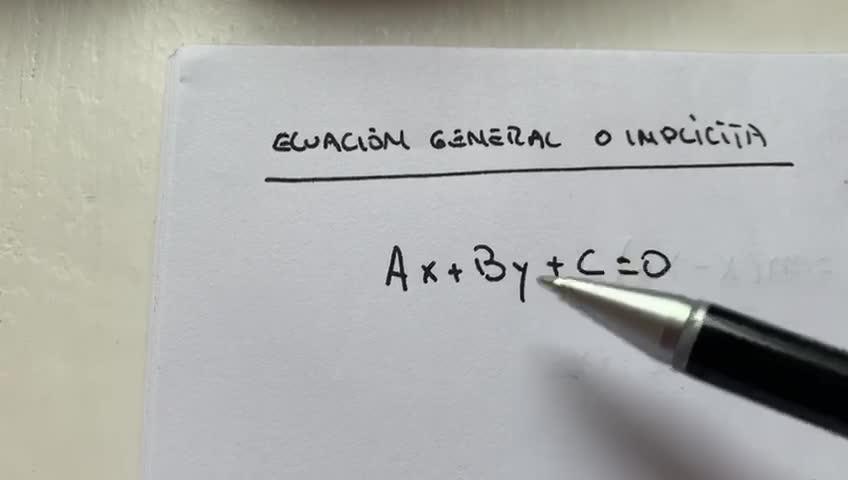 ECUACIÓN GENERAL O IMPLÍCITA
Ax + By + C = 0